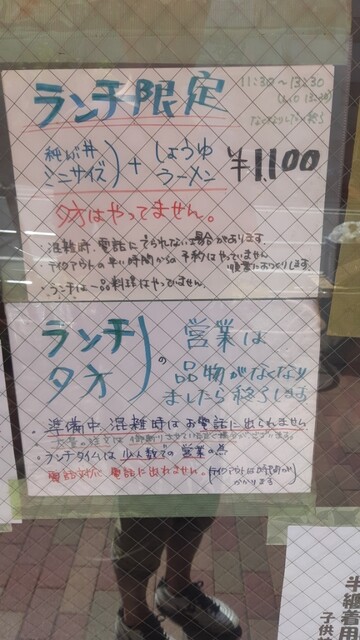 ランチ限定
11:30～13:30
ミニサイズ
+
しょうゆ
ラーメン
¥1100
夕方はやってません。
・混雑時、電話にでられない場合があります。
・テイクアウトの早い時間からの予約はやっていません
・ランチは一品料理はやってません。
ランチ
夕方
の
営業は
品物がなくなり
ましたら終了します
・準備中、混雑時はお電話に出られません
・ランチタイムは少人数での営業の為
電話対応、電話に出れません。
テイクアウトは時間が
かかります
半纏着用
子供